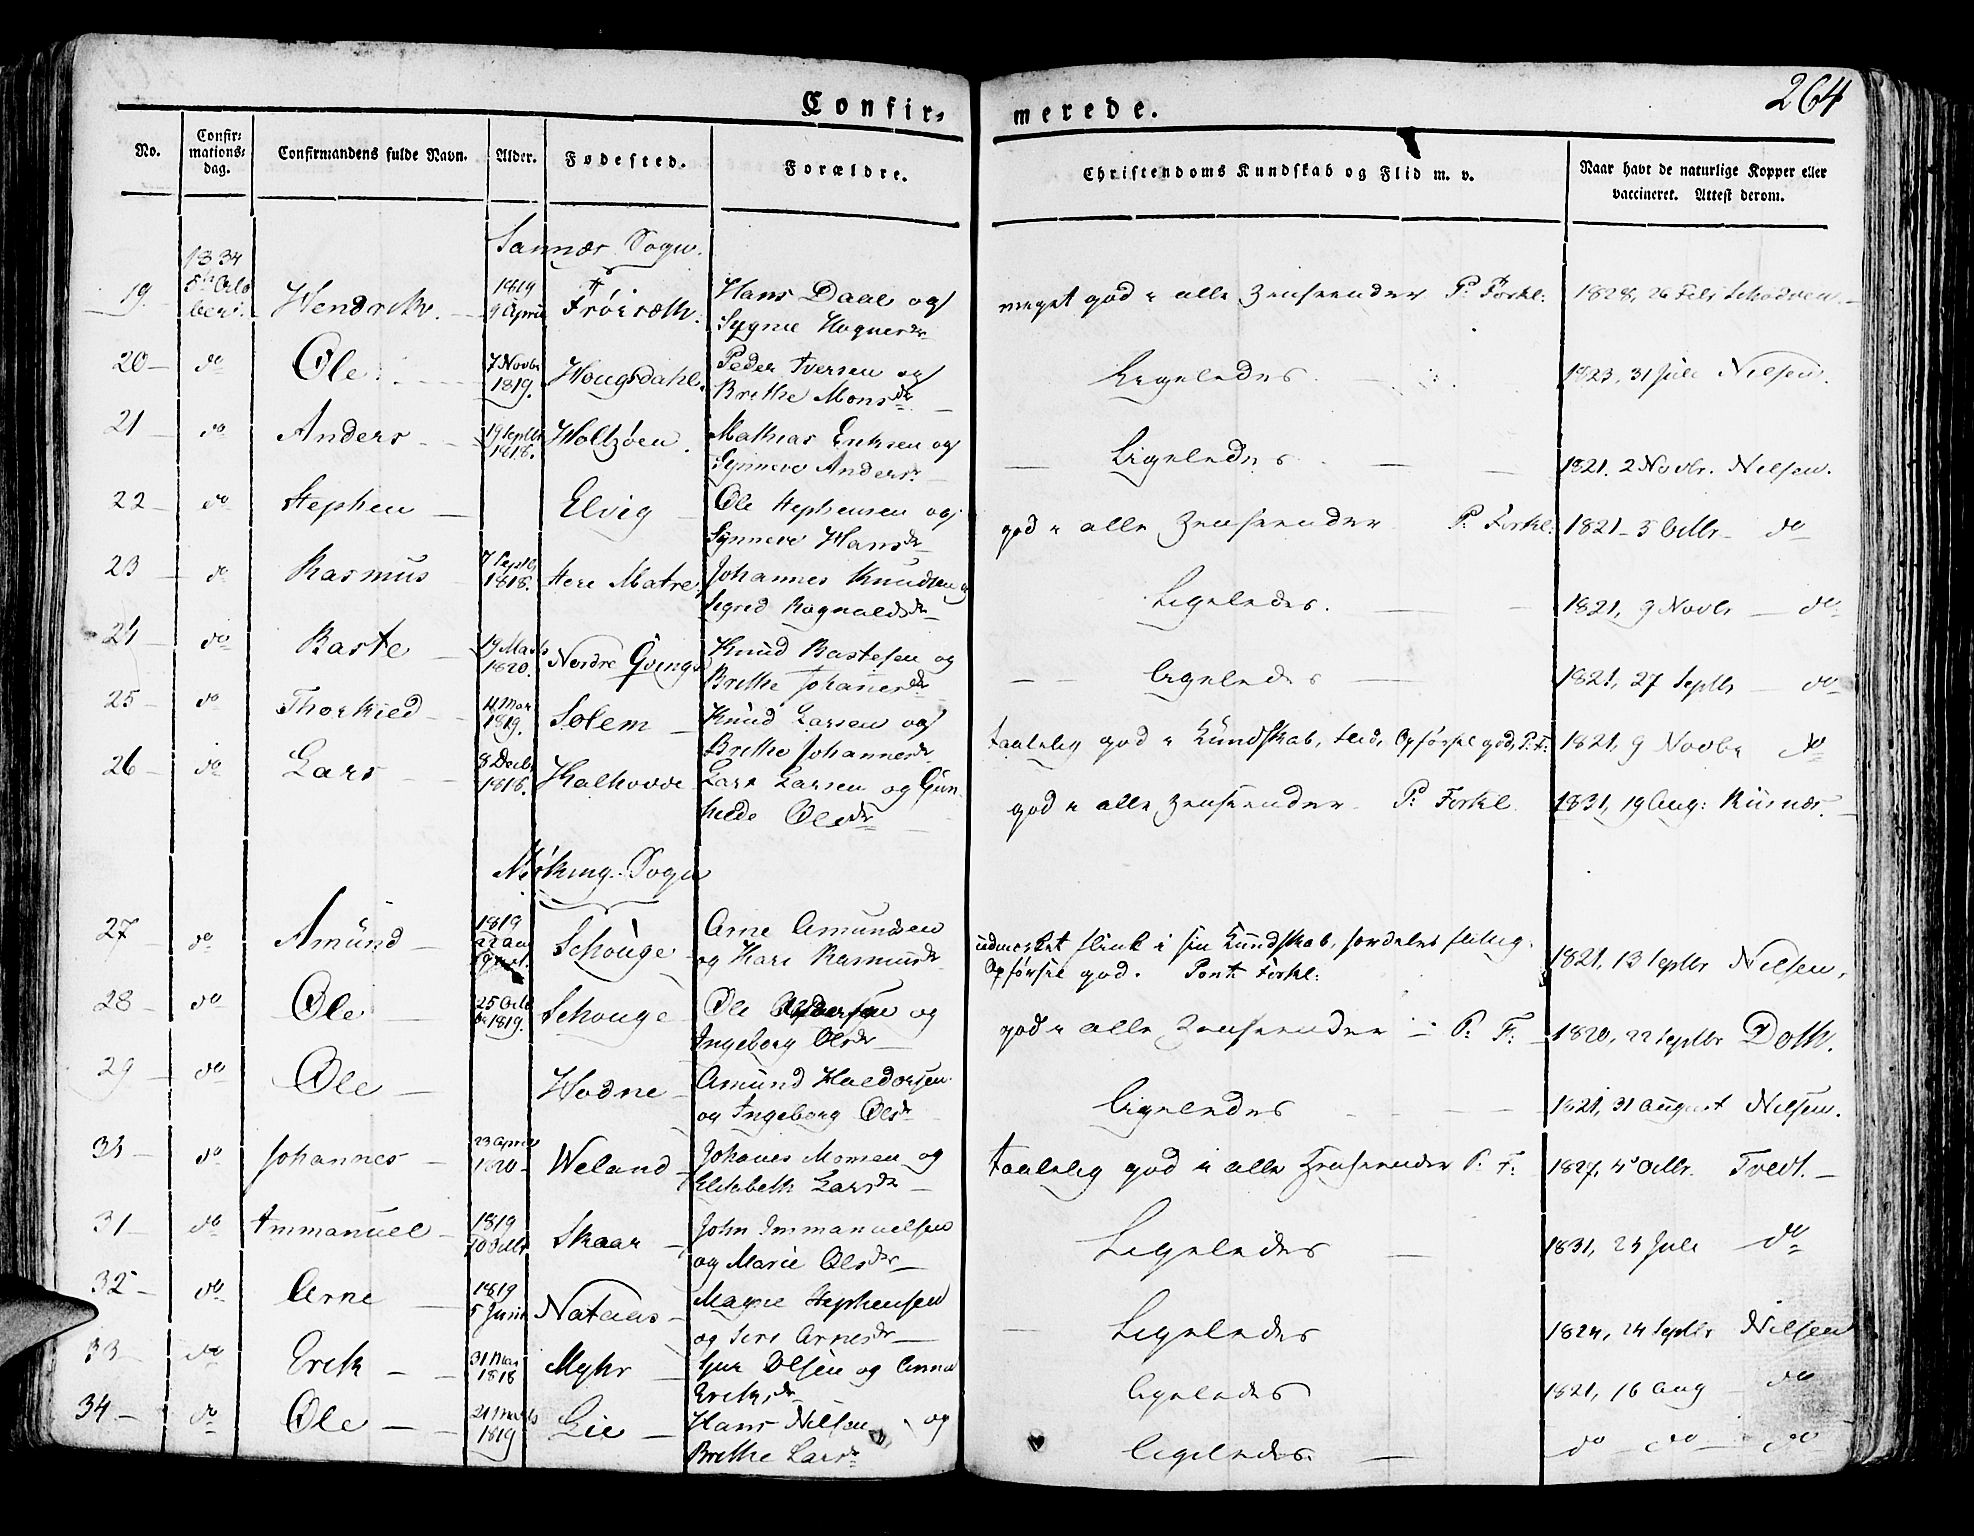 264
Confir- merede.
No. Confir- mations- dag. Confirmandens fulde Navn. Alder. Fødested. Forældre. Christendoms Kundskab og Flid m. v. Naar havt de naturlige Kopper eller vaccineret. Attest derom.
Sannær Sogn.
1834
19 Hendrik. 1819 9 April Frøisæth. Hans Daae og meget god i alle Henseender P: Forkl: 1828, 26 Febr
20 — do Ole 7 Novbr 1819. Hougsdahl. Peder Iversen og Brithe Monsdr Ligeledes 1823, 31 Juli Nielsen.
21 — do Anders 19 Septbr 1818. Holtzøen. Mathias Eriksen og Synneve Andersdr Ligeledes 1821. 2 Novbr. Nielsen.
22 — do Stephen — Elvig Ole Stephensen og Synneve Hansdr god i alle Henseender P: Forkl: 1821 — 5 Octbr — do
23 — do Rasmus 7 Septbr 1818. Øere Matre Johannes Knudsen og Segred Ragnaldsdr Ligeledes. 1821, 9 Novbr — do
24 do Baste 19 Marts 1820. Nordre Qvingo Knud Bastesen og Brithe Johannesdr ligeledes 1821, 27 Septbr — do
25 do Thorkied 4 Mar 1819. Solem Knud Larsen og Brithe Johannesdr taalelig god i Kundskab, Flid, Opførsel god, P: F: 1821, 9 Novbr do
26 — do Lars 8 Decbr 1818. Kalhovde Lars Larsen og Gun- hilde Olsdr god i alle Henseender P: Forkl. 1831, 19 Aug: Riisnæs.
Kirking Sogn
27 do Amund 1819 Schouge Arne Amundsen og Kari Rasmusdr udmærket flink i sin Kundskab, fordeles flittig. Opførsel god. Pont: Forkl: 1821, 13 Septbr Nielsen,
28 — do Ole 25 Octbr 1819. Schouge Ole og Ingeborg Olsdr god i alle Henseender P: F: 1820, 22 Septbr Doth.
29 — do Ole — Hodne Amund Haldorsen og Ingeborg Olsdr ligeledes 1821, 31 August Nielsen.
do Johannes 23 April 1820 Weland Johanes Monsen og Elisabeth Larsdr taalelig god i alle Henseender P: F: 1827, 4 Octbr. Tvedt. —
31 — do Immanuel 1819 10 Octbr Skaar John Immanuelsen og Marie Olsdr Ligeledes 1831, 25 Juli do
32 — do Arne 1819 5 Juni Nataas Magne Stephensen og Seri Arnesdr Ligeledes 1824, 24 Septbr Nielsen
33 — do Erik 31 Mar 1818 Myhr Gur Olsen og Anna Eriksdr ligeledes 1821, 16 Aug do
34 — do Ole 21 Marts 1819 Lie Hans Nielsen og Brithe Larsdr ligeledes. do — do — do